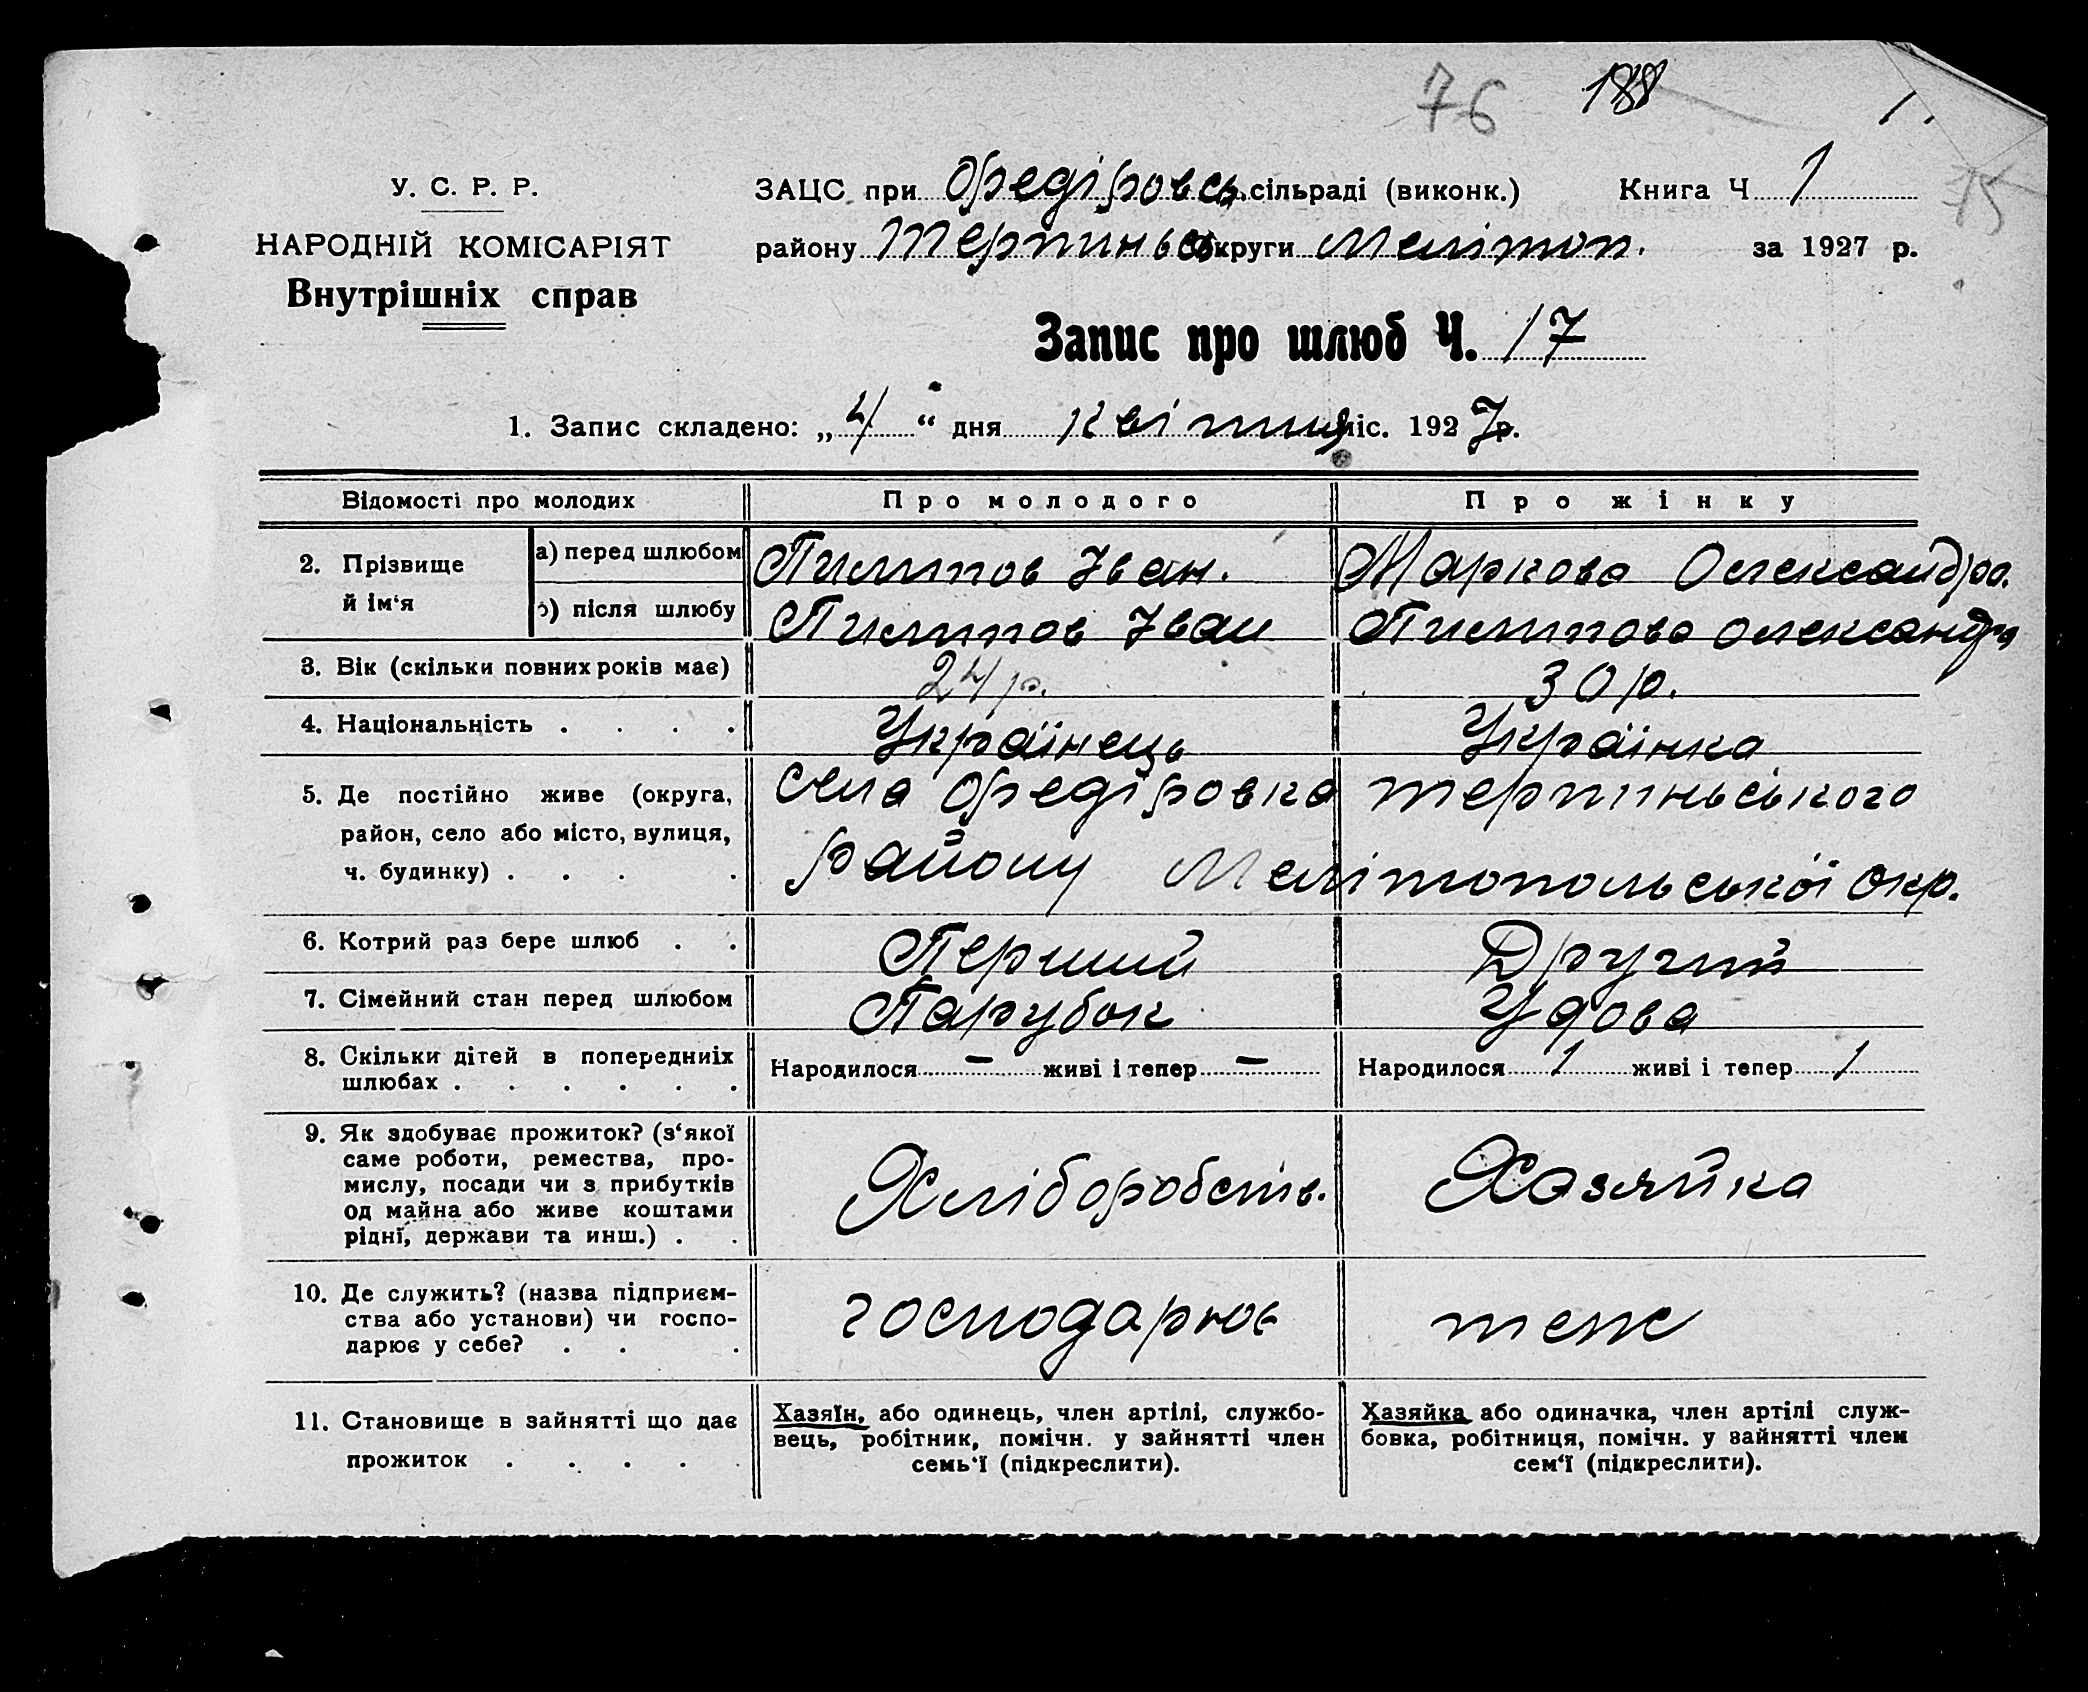 76 188 1.
У. С. Р. Р.
ЗАЦС при Федіровсь. сільраді (виконк.) Книга Ч 1
75
НАРОДНІЙ КОМІСАРІЯТ
району Терпиньськ округи Мелітоп. за 1927 р.
Внутрішніх справ
Запис про шлюб Ч. 17
1. Запис складено: „4“ дня квітня міс. 1927 р.
Відомості про молодих Про молодого Про жінку
2. Прізвище й ім‘я
а) перед шлюбом Пилипов Іван. Маркова Олександра.
б) після шлюбу Пилипов Іван Пилипова Олександра
3. Вік (скільки повних років має) 24 р. 30 р.
4. Національність . . . . Українець Українка
5. Де постійно живе (округа, села Федіровка терпинського
район, село або місто, вулиця,
ч. будинку) . . . . району Мелітопольської окр.
6. Котрий раз бере шлюб . . Перший Другий
7. Сімейний стан перед шлюбом Парубок Удова
8. Скільки дітей в попередниіх
шлюбах . . . . . .
Народилося – живі і тепер – Народилося 1 живі і тепер 1
9. Як здобуває прожиток? (з‘якої
саме роботи, ремества, про-
мислу, посади чи з прибутків
од майна або живе коштами
рідні, держави та инш.) . .
Хліборобств. Хазяйка
10. Де служить? (назва підприєм-
ства або установи) чи госпо-
дарює у себе? . . .
господарює теж
11. Становище в зайнятті що дає
прожиток . . . . .
Хазяїн, або одинець, член артілі, службо-
вець, робітник, помічн. у зайнятті член
семь‘ї (підкреслити).
Хазяйка або одиначка, член артілі служ-
бовка, робітниця, помічн. у зайнятті член
сем‘ї (підкреслити).